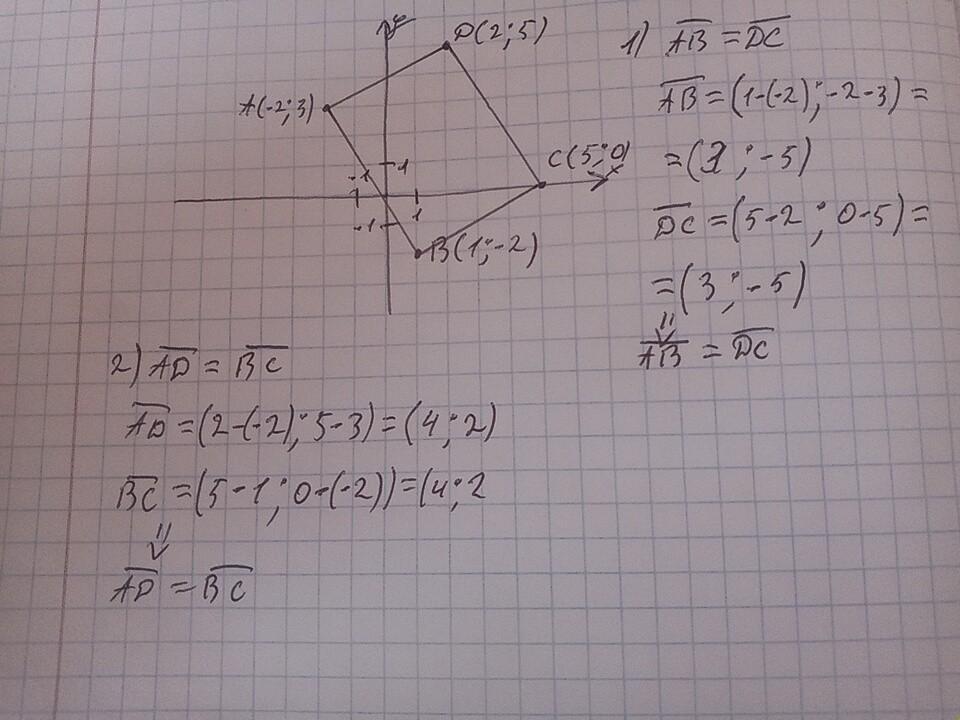 y
D(2;5)
A(-2;3)
C(5;0)
x
-1
1
1
-1
B(1;-2)
1) AB = DC
AB = (1-(-2); -2-3) =
= (3; -5)
DC = (5-2; 0-5) =
= (3; -5)
⇓
AB = DC
2) AD = BC
AD = (2-(-2); 5-3) = (4; 2)
BC = (5-1; 0-(-2)) = (4; 2
⇓
AD = BC